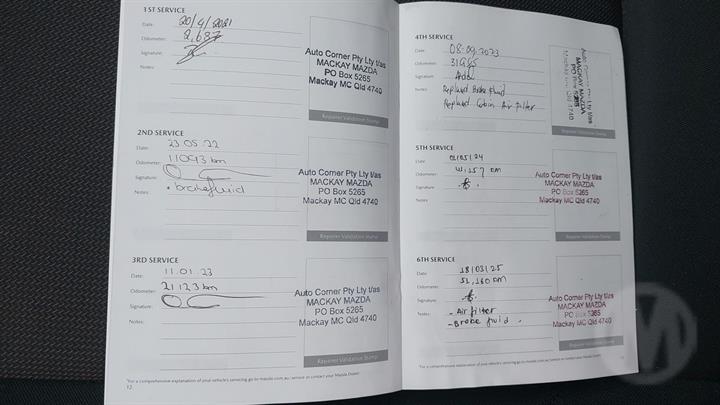 1ST SERVICE
Date: 20/4/2021
Odometer: 2,637
Signature:
Notes:
Auto Corner Pty Ltd t/as
MACKAY MAZDA
PO Box 5265
Mackay MC Qld 4740
Repairer Validation Stamp
2ND SERVICE
Date: 23 05 22
Odometer: 11093 km
Signature:
Notes: • brake fluid
Auto Corner Pty Ltd t/as
MACKAY MAZDA
PO Box 5265
Mackay MC Qld 4740
Repairer Validation Stamp
3RD SERVICE
Date: 11.01.23
Odometer: 21123 km
Signature:
Notes:
Auto Corner Pty Ltd t/as
MACKAY MAZDA
PO Box 5265
Mackay MC Qld 4740
Repairer Validation Stamp
*For a comprehensive explanation of your vehicle's servicing go to mazda.com.au/service or contact your Mazda Dealer.
12
4TH SERVICE
Date: 08.09.2023
Odometer:
Signature:
Notes: Replaced Brake fluid
Replaced Cabin Air Filter
MACKAY MAZDA
Repairer Validation Stamp
5TH SERVICE
Date: 24
Odometer: 41,257 km
Signature:
Notes:
Auto Corner Pty Ltd t/as
MACKAY MAZDA
PO Box 5265
Mackay MC Qld 4740
Repairer Validation Stamp
6TH SERVICE
Date: 18/03/25
Odometer: 52,160 km
Signature:
Notes: - Air filter
- Brake fluid.
Auto Corner Pty Ltd t/as
MACKAY MAZDA
PO Box 5265
Mackay MC Qld 4740
Repairer Validation Stamp
*For a comprehensive explanation of your vehicle's servicing go to mazda.com.au/service or contact your Mazda Dealer.